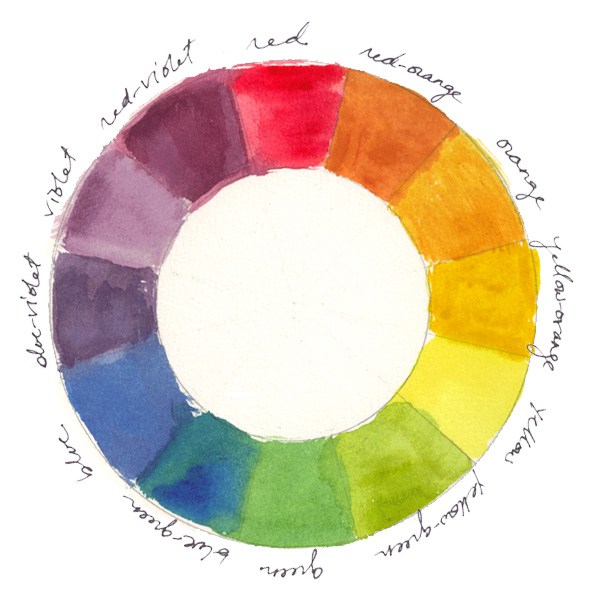 red
red-orange
orange
yellow-orange
yellow
yellow-green
green
blue-green
blue
blue-violet
violet
red-violet